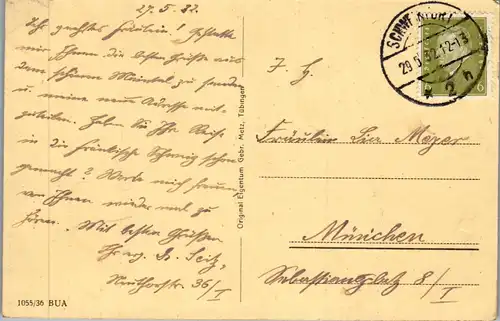 27.5.32.
Sehr geehrtes Fräulein! Gestatte
mir Ihnen die besten Grüße aus
dem schönen Maintal zu senden
u. meine neue Adresse mit-
zuteilen. Haben Sie Ihre Reise
in die Fränkische Schweiz schon
gemacht? Werde mich freuen
von Ihnen wieder mal zu
hören. Mit besten Grüßen
Ihr erg. G. Seitz,
36/I
Original Eigentum Gebr. Metz, Tübingen
1055/36 BUA
SCHWEINFURT
29.5.32.12-13
2 h
6
Fräulein Meyer
München
Sebastiansplatz 8/I